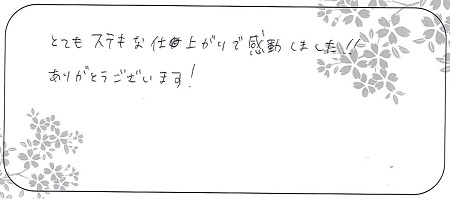 とてもステキな仕上がりで感動しました!!
ありがとうございます!